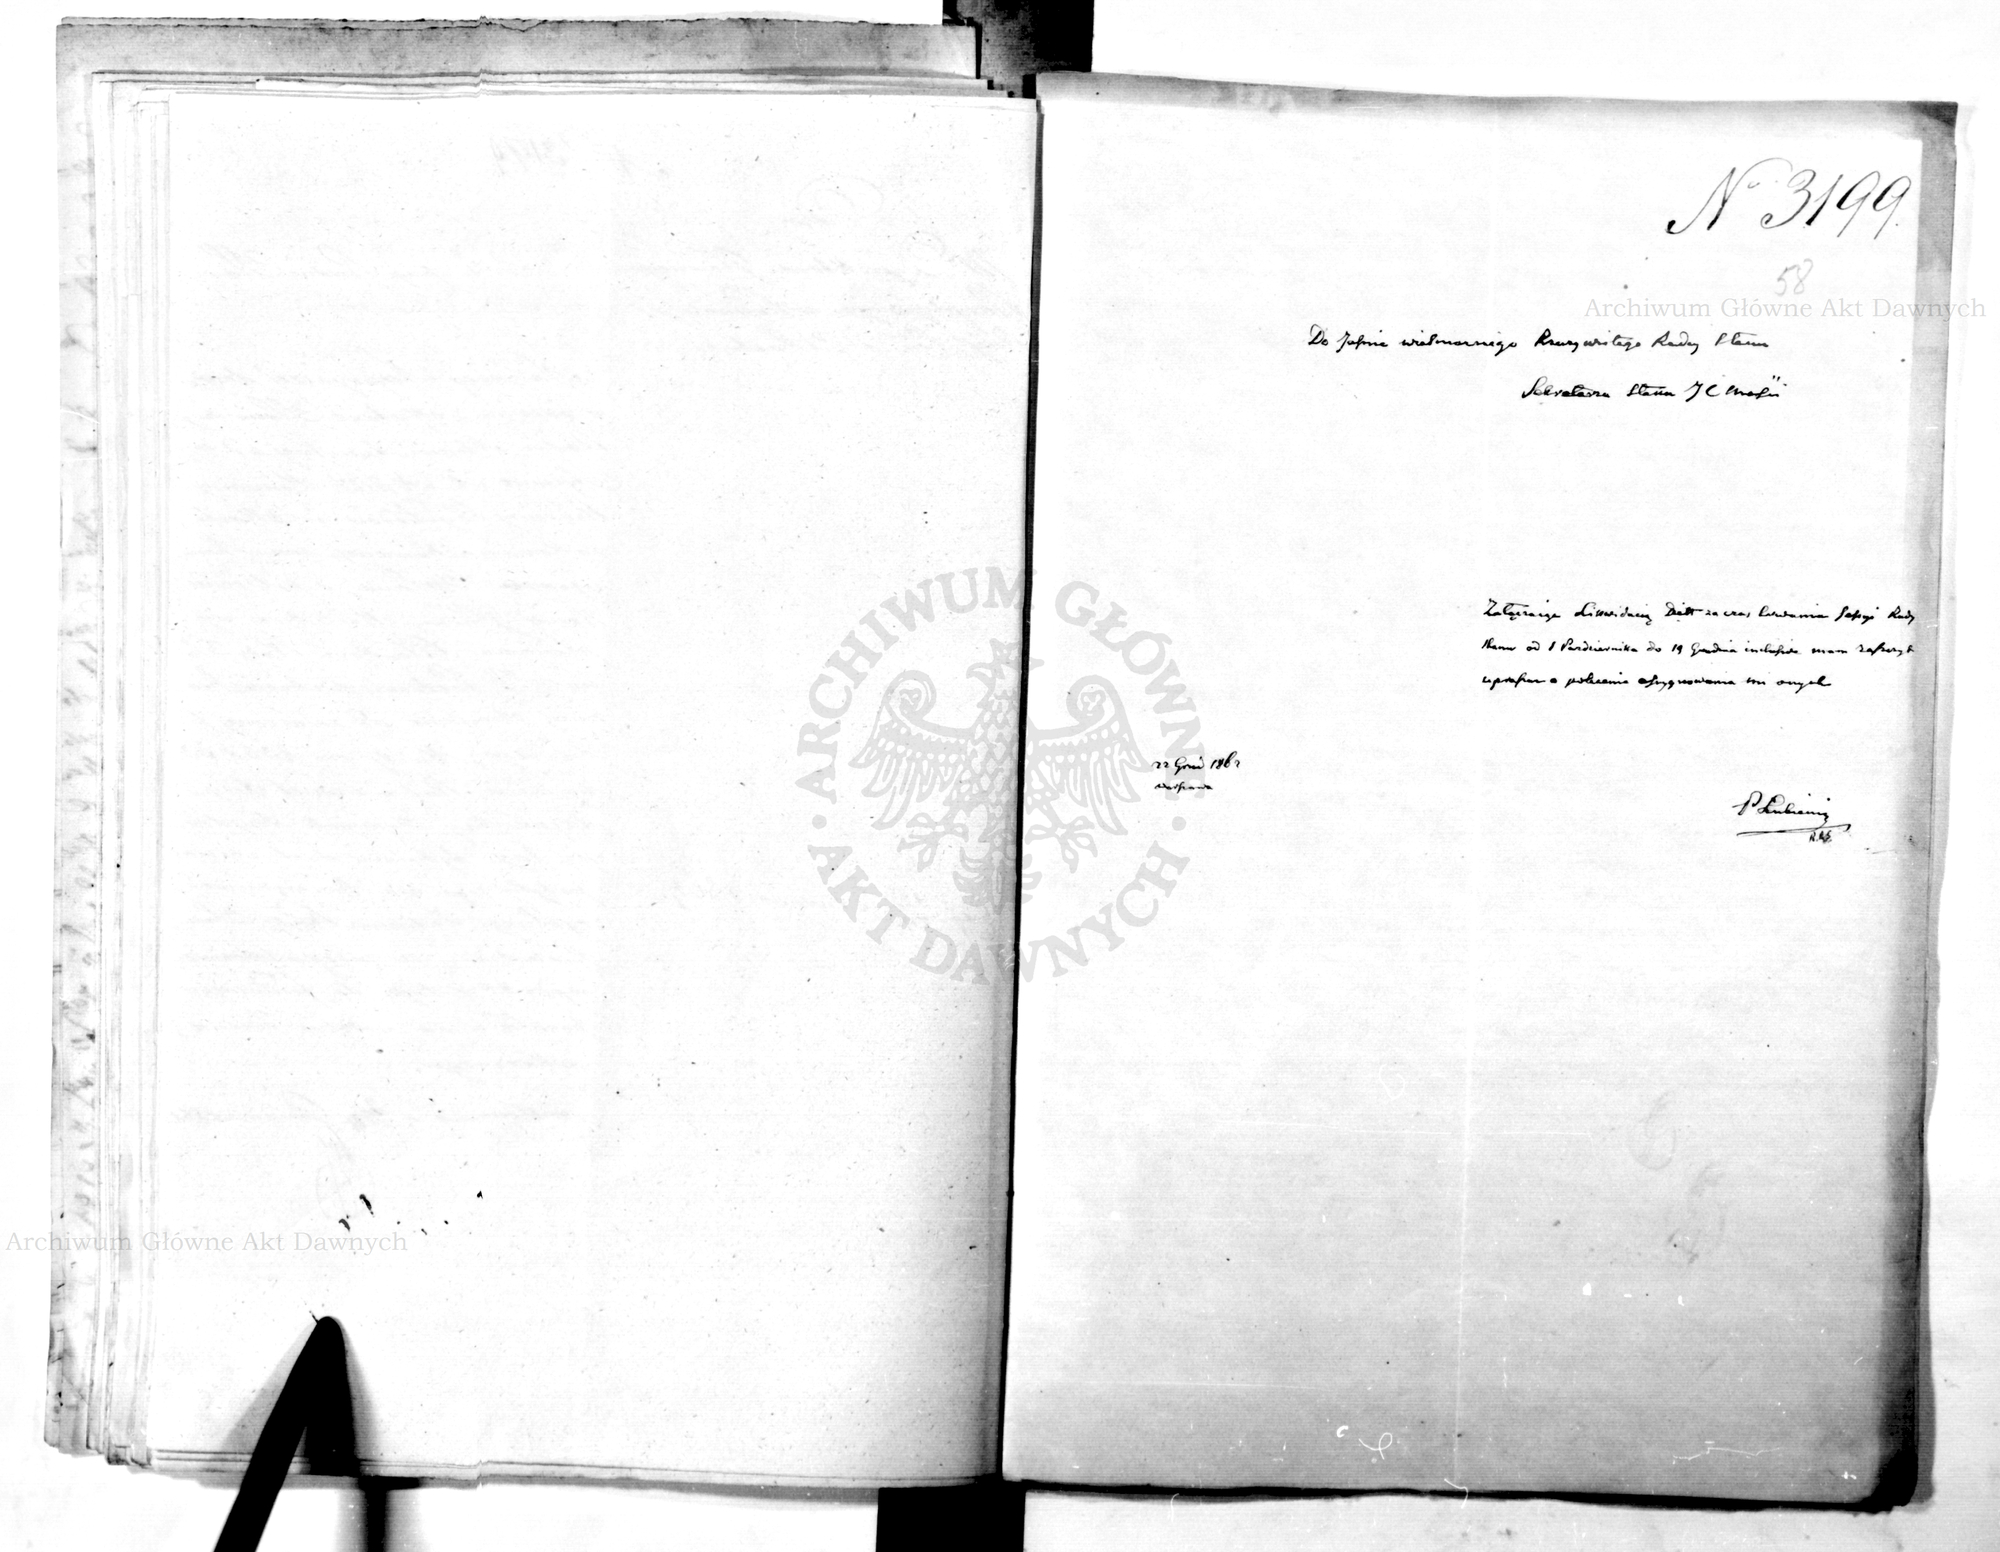 N 3199.
58
Archiwum Główne Akt Dawnych
Do Jaśnie wielmożnego Rzeczywistego Radcy Stanu
Sekretarza Stanu J C Mości
Załączając Likwidacją Diet za czas trwania Sessyi Rady
Stanu od 1 Października do 19 Grudnia inclusive mam zaszczyt
upraszać o polecenie assygnowania mi onych
22 Grud 1862
Warszawa
P Łubieński
ARCHIWUM GŁÓWNE AKT DAWNYCH
Archiwum Główne Akt Dawnych